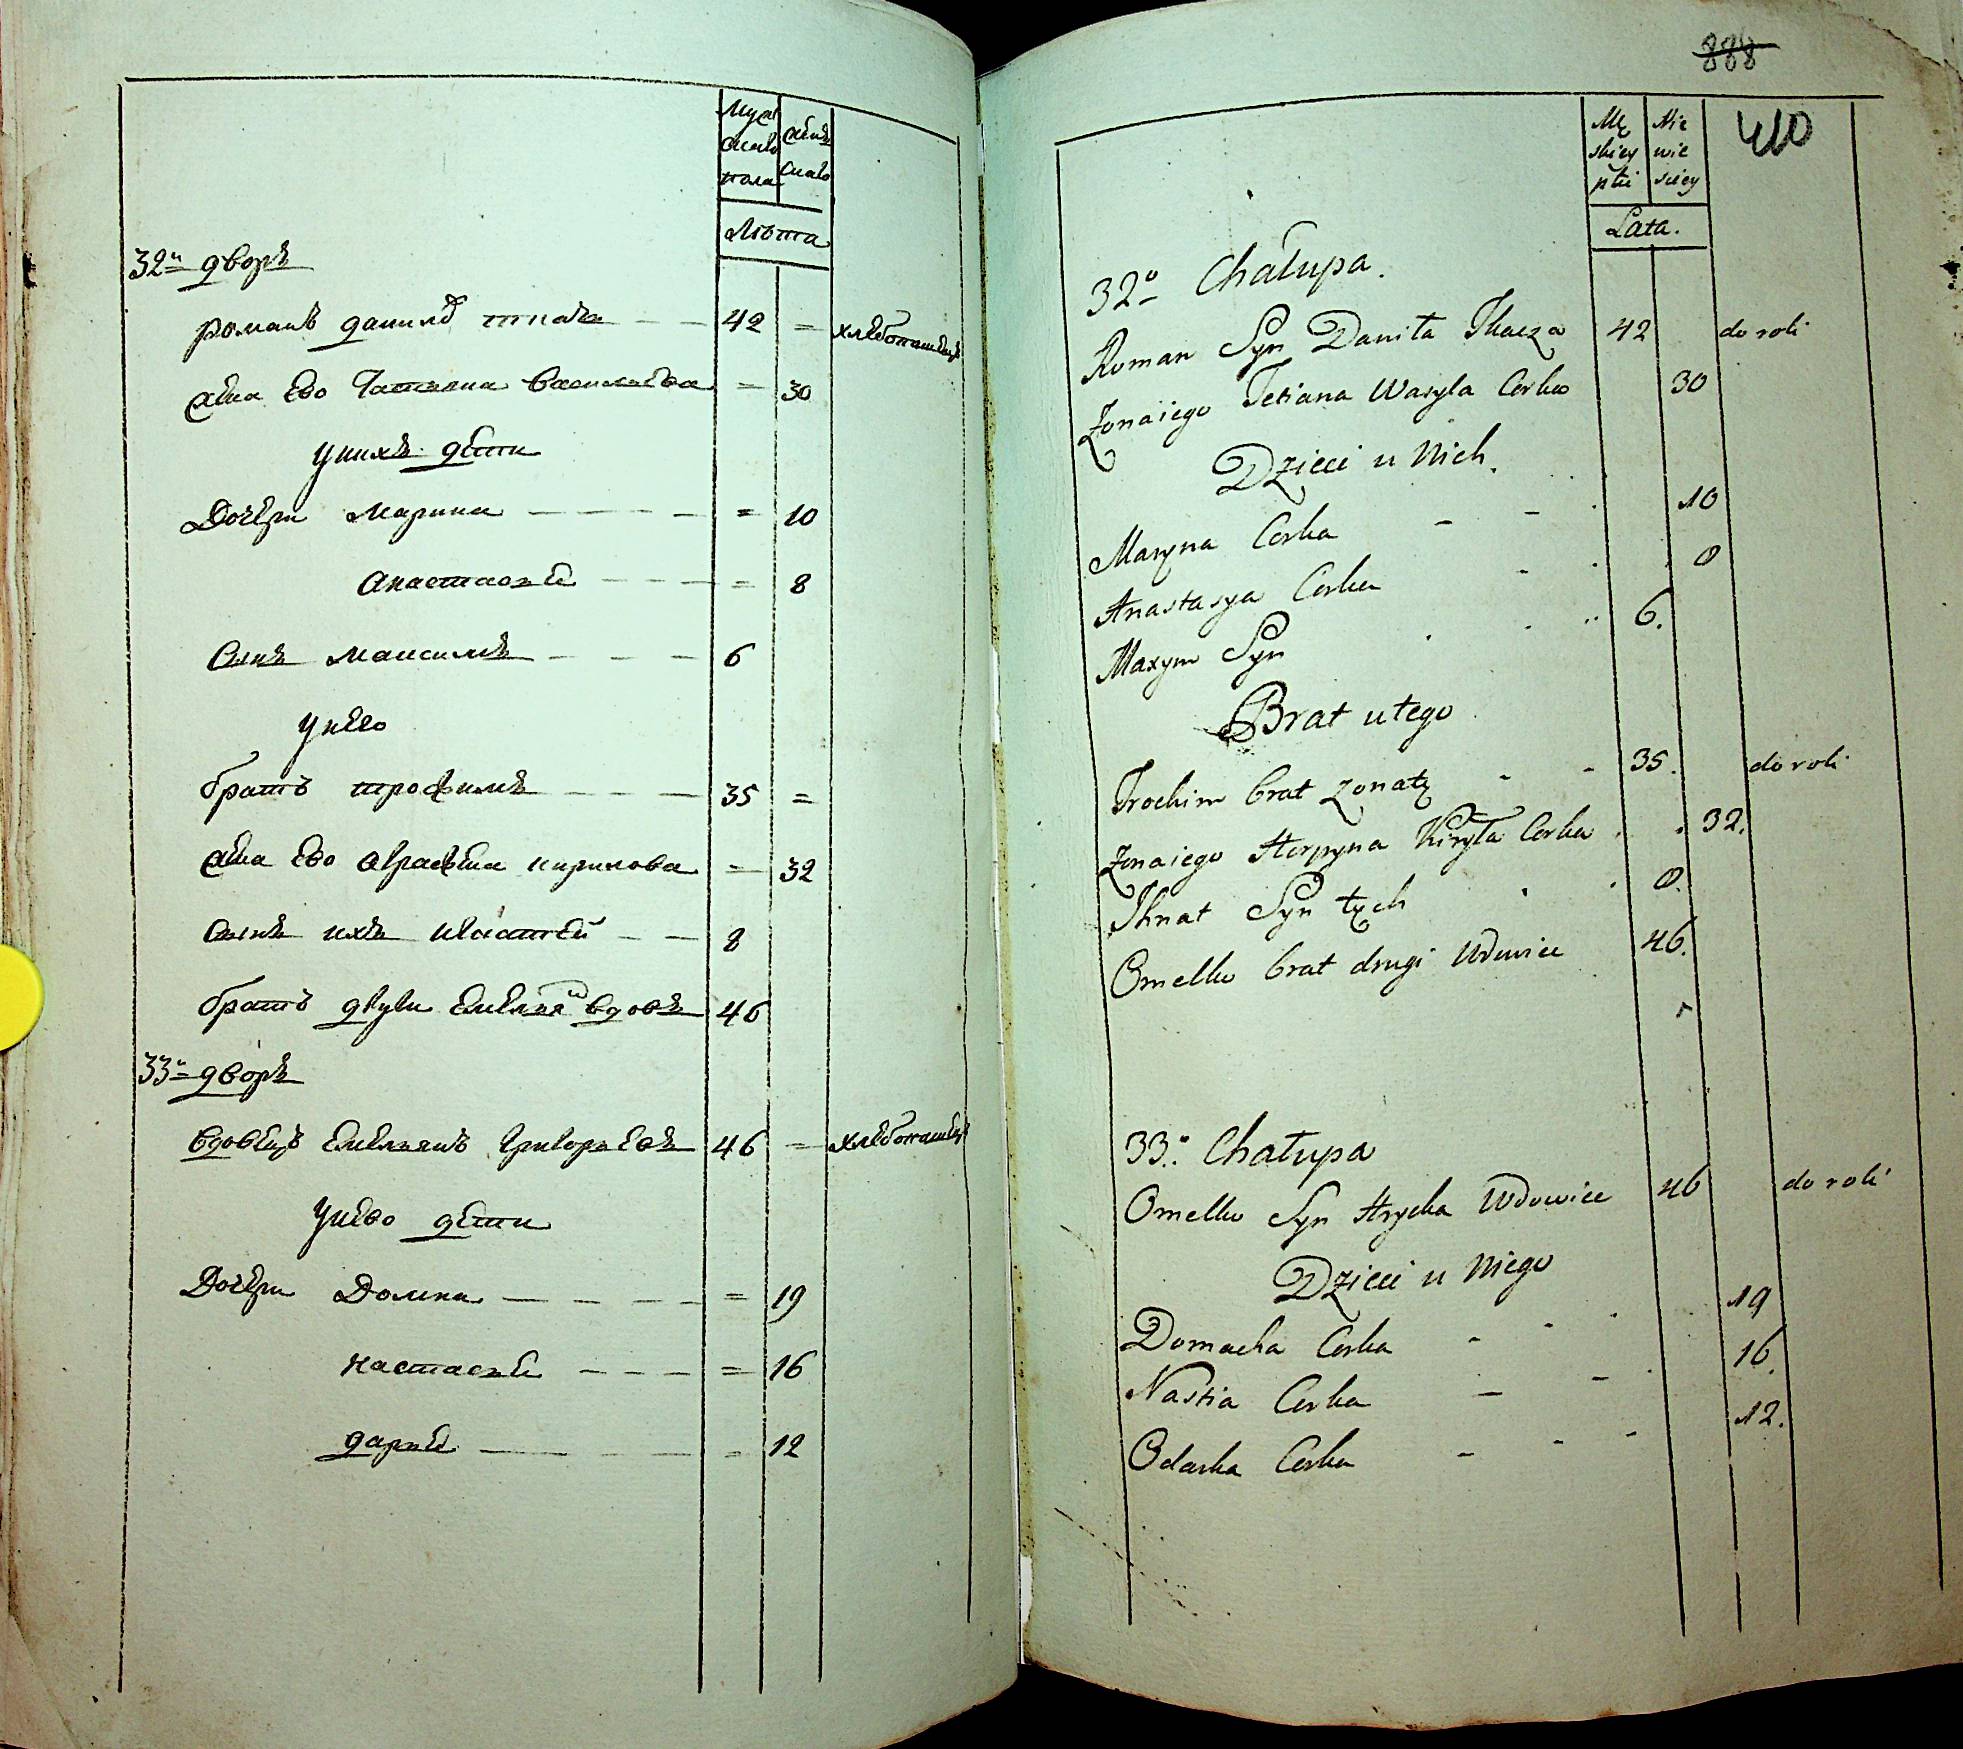 Мужеска пола
женска
Лѣта
32й дворъ
романъ данило ткачъ — — 42 = хлѣбопашецъ
жена ево Татьяна василева = 30
у нихъ дети
Дочери марина — — — — = 10
анастасиѣ — — — = 8
Сынъ максимъ — — — 6
у него
братъ трофимъ — — — 35 =
жена ево кирилова — 32
Сынъ ихъ — — 8
братъ други емелянъ вдовъ 46
33й дворъ
вдовецъ емельянъ григорьевъ 46 — хлѣбопашецъ
у нево дети
Дочери Домна — — — — = 19
настасиѣ — — — = 16
дариѣ — — — = 12
888
410
Męskiey płci
Niewieściey
Lata.
32o Chałupa.
Roman Syn Daniła Tkacza 42 do roli
Zona iego Tetiana Wasyla Corka 30
Dzieci u Nich.
Maryna Corka - - . 10
Anastasya Corka - . . 8
Maxym Syn . . .. 6.
Brat u tego
Trochim brat zonaty - - 35. do roli
Zona iego Horpyna Kiryła Corka . . 32.
Ihnat Syn tych . . 8.
Omelko brat drugi Wdowiec 46.
33.o Chałupa
Omelko Syn Hrycka Wdowiec 46 do roli
Dzieci u Niego
Domacha Corka - - . 19
Nastia Corka - - . 16.
Odarka Corka - - - 12.